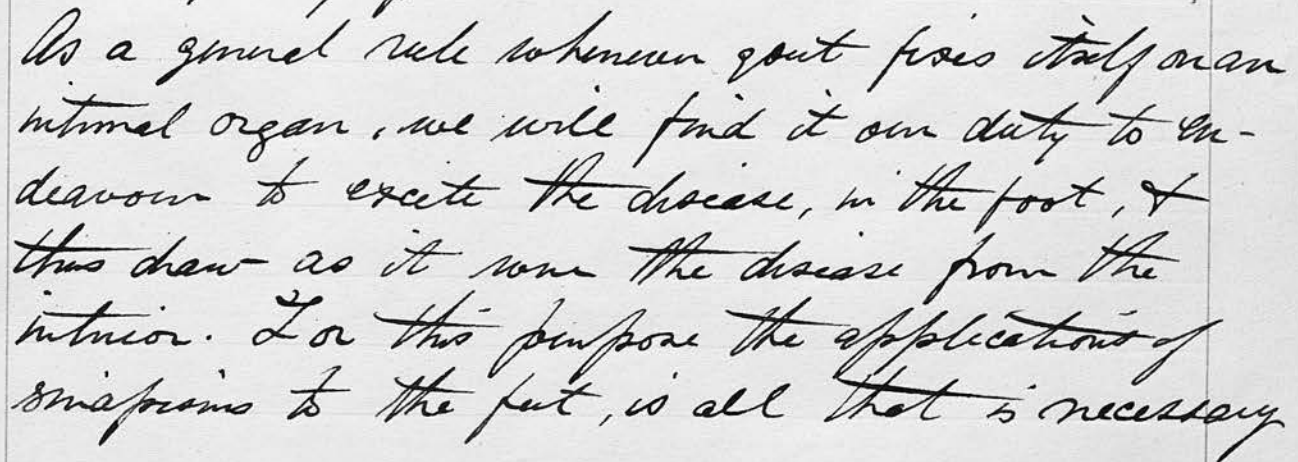 As a general rule whenever gout fixes itself on an
internal organ, we will find it our duty to en-
deavour to excite the disease, in the foot, &
thus draw as it were the disease from the
interior. For this purpose the applications of
sinapisms to the feet, is all that is necessary